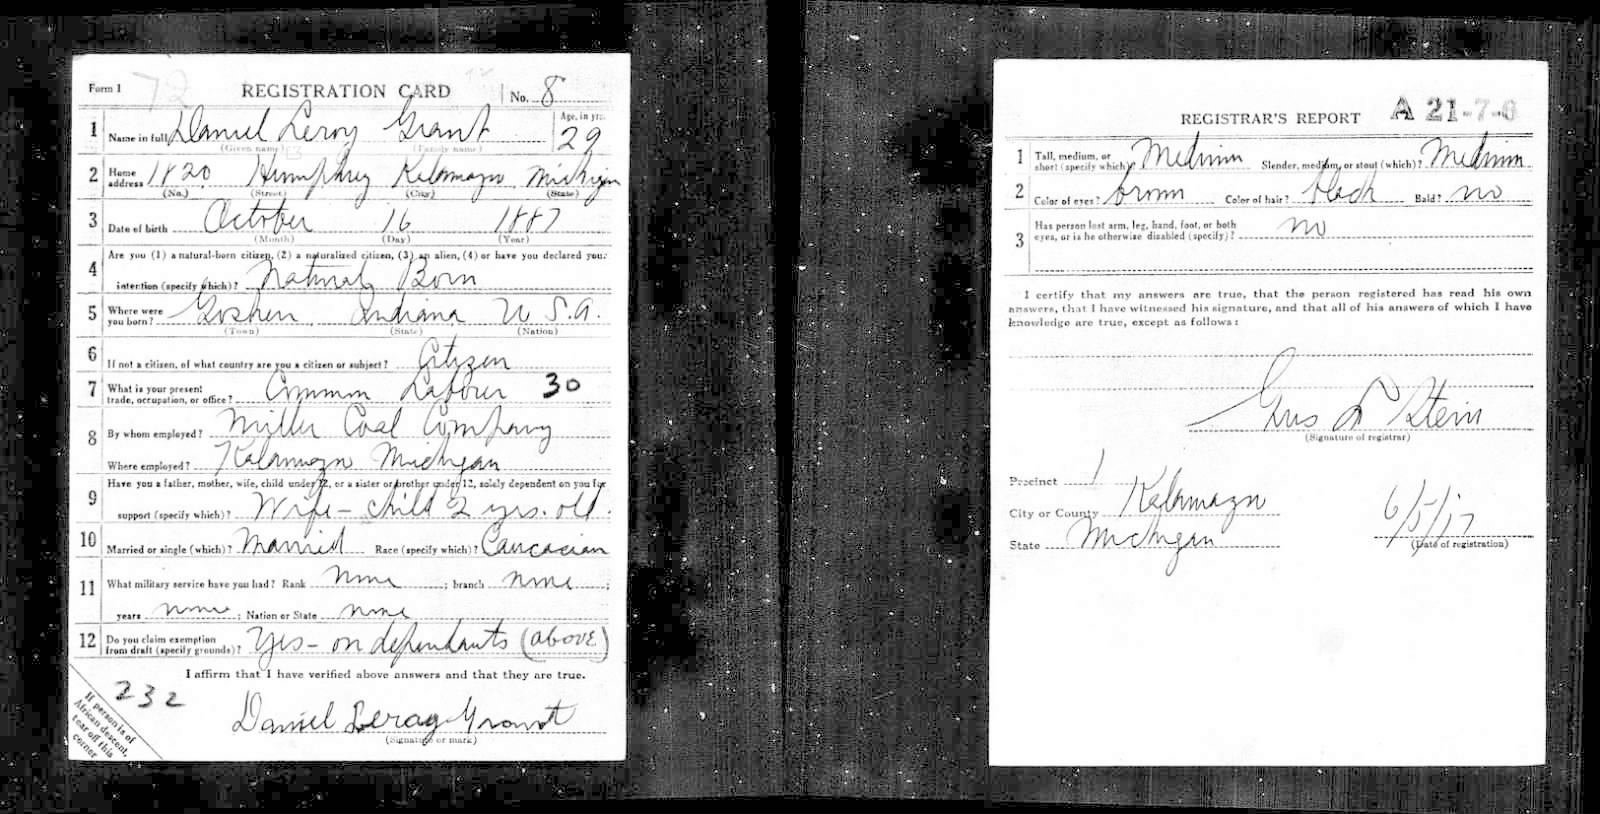 Form 1 72 REGISTRATION CARD No. 8
1 Name in full Daniel Leroy Grant Age, in yrs. 29
(Given name) (Family name)
2 Home address 1820 Humphrey Kalamazoo Michigan
(No.) (Street) (City) (State)
3 Date of birth October 16 1887
(Month) (Day) (Year)
4 Are you (1) a natural-born citizen, (2) a naturalized citizen, (3) an alien, (4) or have you declared your
intention (specify which)? Natural Born
5 Where were you born? Goshen Indiana U.S.A.
(Town) (State) (Nation)
6 If not a citizen, of what country are you a citizen or subject? Citizen
7 What is your present trade, occupation, or office? Common Laborer 30
8 By whom employed? Miller Coal Company
Where employed? Kalamazoo Michigan
9 Have you a father, mother, wife, child under 12, or a sister or brother under 12, solely dependent on you for
support (specify which)? Wife - child 2 yrs. old.
10 Married or single (which)? Married Race (specify which)? Caucasian
11 What military service have you had? Rank None ; branch None ;
years None ; Nation or State None
12 Do you claim exemption from draft (specify grounds)? Yes - on dependants (above)
I affirm that I have verified above answers and that they are true.
232
Daniel Leroy Grant
(Signature or mark)
If person is of
African descent,
tear off this
corner
REGISTRAR'S REPORT A 21-7-6
1 Tall, medium, or short (specify which)? Medium Slender, medium, or stout (which)? Medium
2 Color of eyes? brown Color of hair? Black Bald? no
3 Has person lost arm, leg, hand, foot, or both
eyes, or is he otherwise disabled (specify)? no
I certify that my answers are true, that the person registered has read his own
answers, that I have witnessed his signature, and that all of his answers of which I have
knowledge are true, except as follows:
Gus L Stein
(Signature of registrar)
Precinct 1
City or County Kalamazoo
State Michigan
6/5/17
(Date of registration)